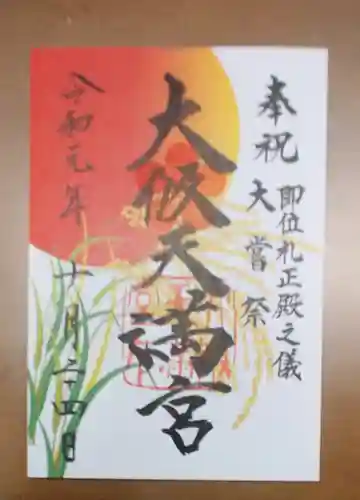 奉祝
即位礼正殿之儀
大嘗祭
大阪天満宮
令和元年
十一月二十四日